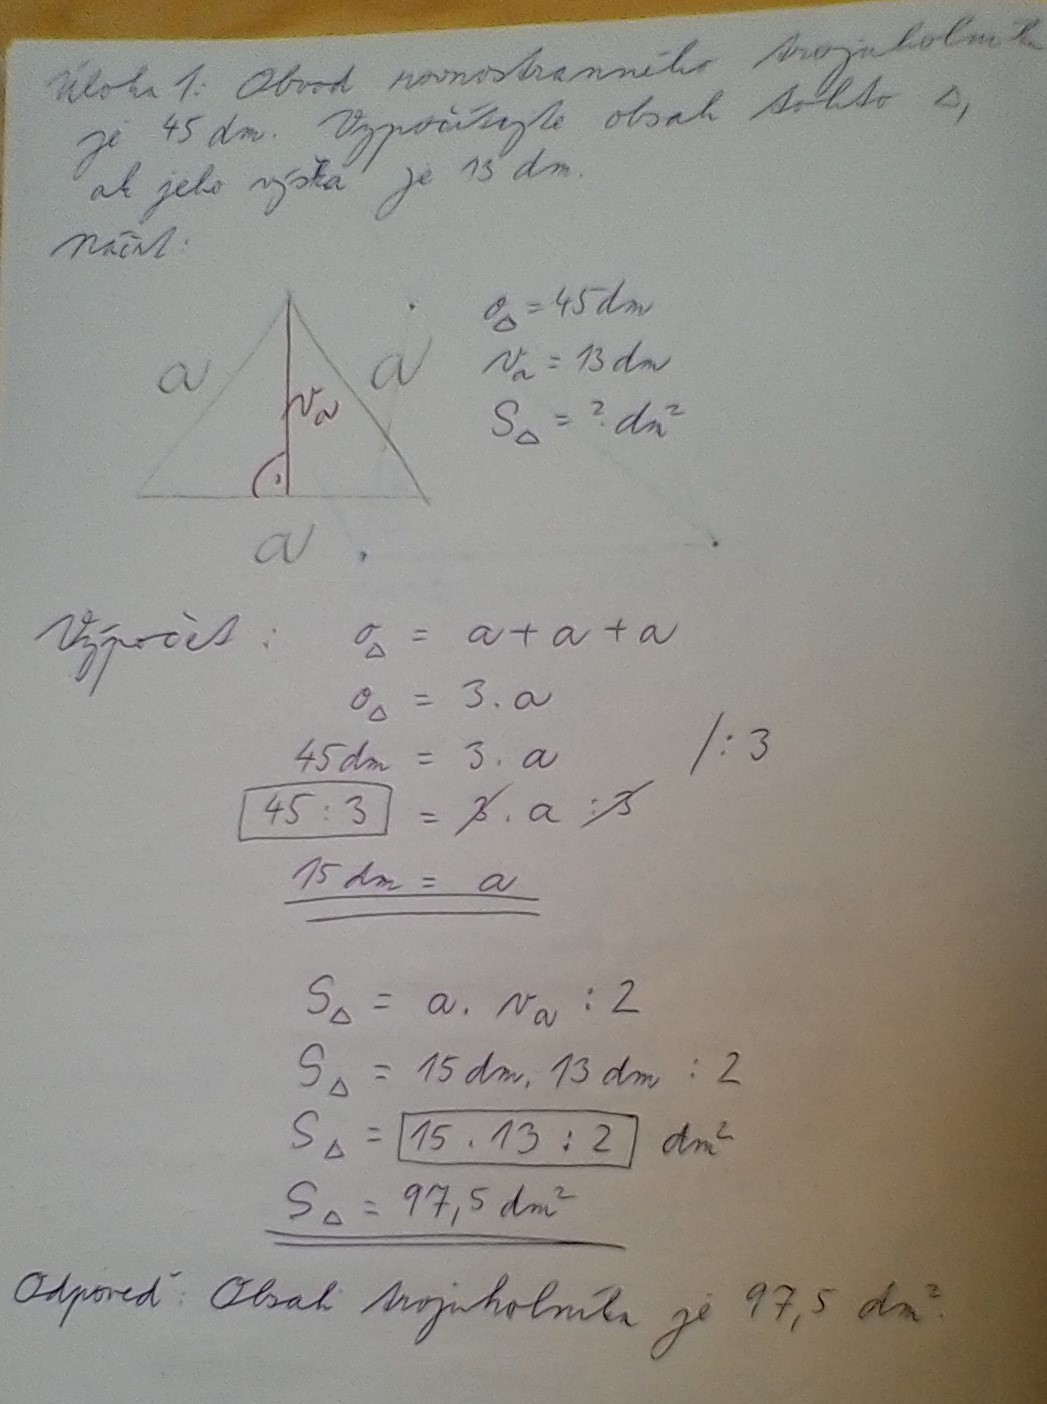 Úloha 1: Obvod rovnostranného trojuholníka
je 45 dm. Vypočítajte obsah tohto △,
ak jeho výška je 13 dm.
Náčrt:
a a vₐ a
o△ = 45 dm
vₐ = 13 dm
S△ = ? dm²
Výpočet: o△ = a + a + a
o△ = 3 . a
45 dm = 3 . a /: 3
45 : 3 = 3 . a : 3
15 dm = a
S△ = a . vₐ : 2
S△ = 15 dm . 13 dm : 2
S△ = 15 . 13 : 2 dm²
S△ = 97,5 dm²
Odpoveď: Obsah trojuholníka je 97,5 dm².